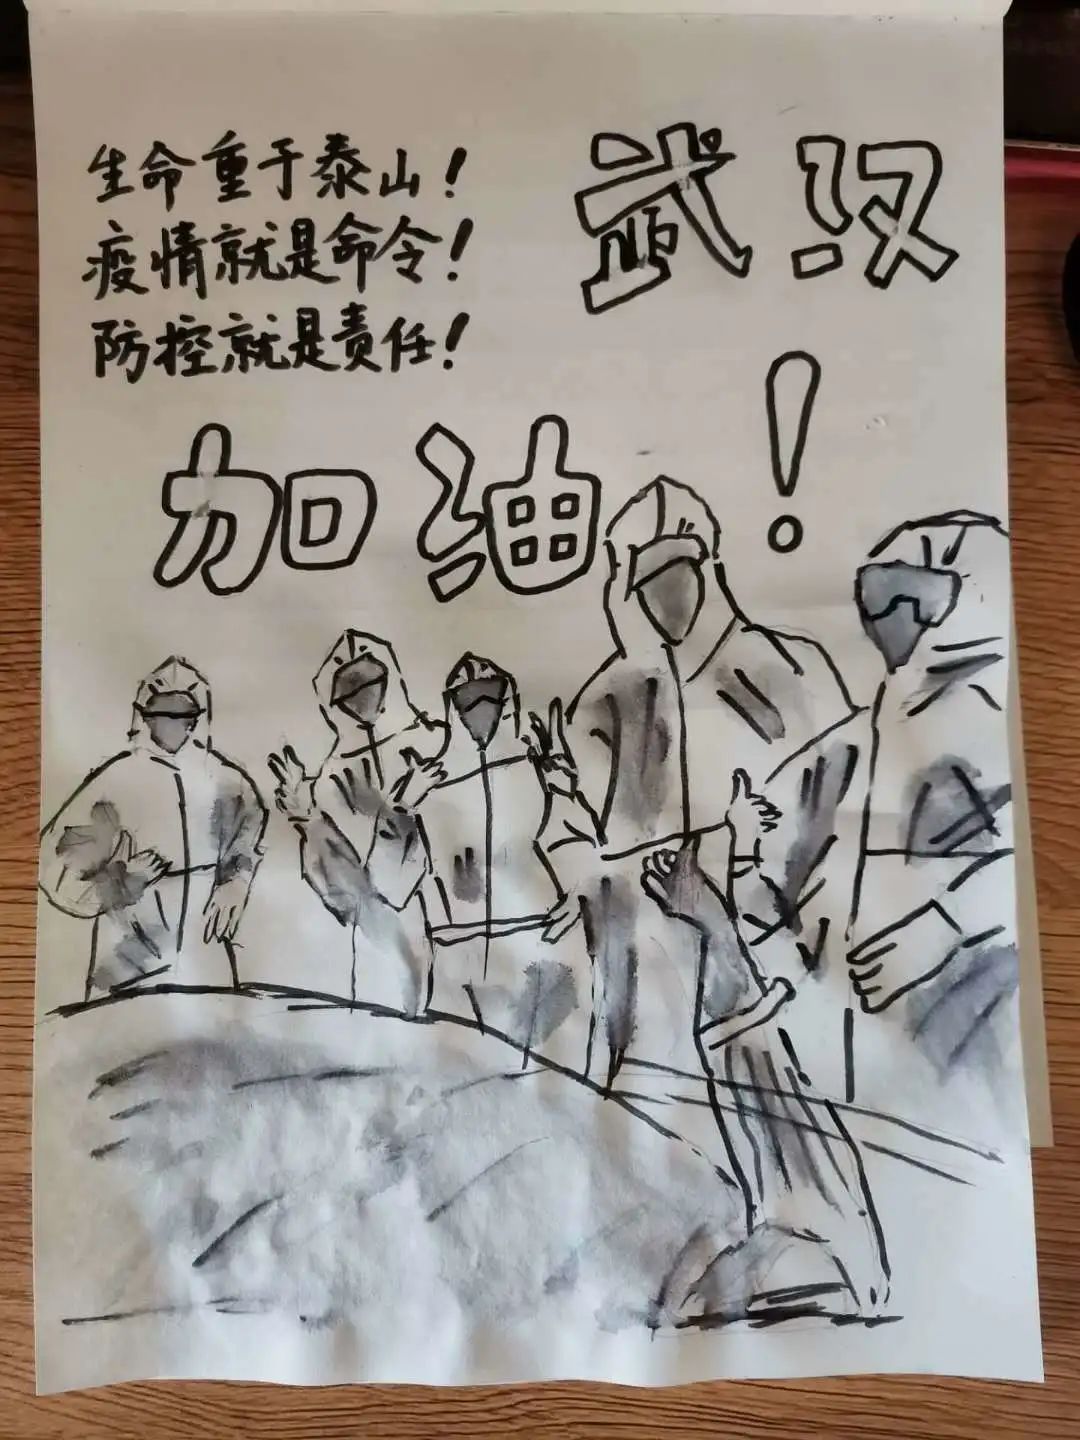 生命重于泰山！
疫情就是命令！
防控就是责任！
武汉
加油！